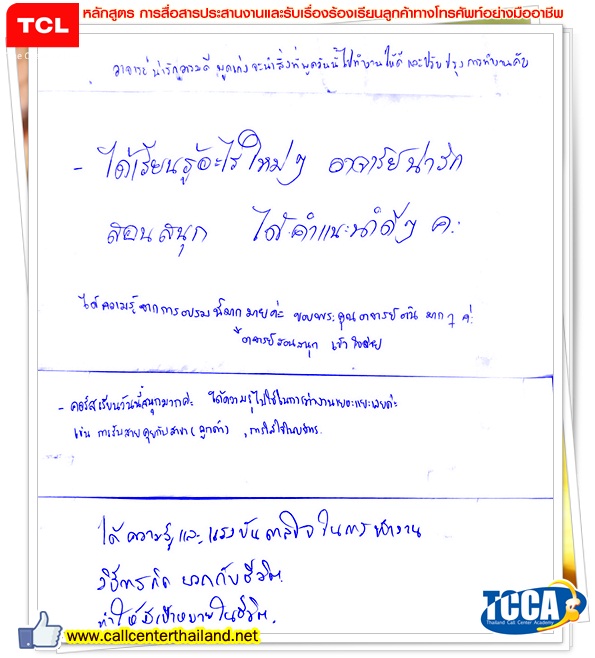 TCL
หลักสูตร การสื่อสารประสานงานและรับเรื่องร้องเรียนลูกค้าทางโทรศัพท์อย่างมืออาชีพ
อาจารย์น่ารักอารมดี พูดเก่งจะนำสิ่งที่พูดวันนี้ไปทำงานให้ดี และปรับปรุงการทำงานค่ะ
- ได้เรียนรู้อะไรใหม่ๆ อาจารย์น่ารัก
สอนสนุก ได้คำแนะนำดีๆ ค่ะ
ได้ความรู้จากการอบรมนี้มากมายค่ะ ขอบพระคุณอาจารย์ มากๆ ค่ะ
อาจารย์สอนสนุก เข้าใจง่าย
- คอร์สเรียนวันนี้สนุกมากค่ะ ได้ความรู้ไปใช้ในการทำงานเยอะแยะเลยค่ะ
เช่น การรับสายคุยกับสาขา (ลูกค้า), การใส่ใจในบริการ
ได้ความรู้และแรงบันดาลใจในการทำงาน
วิธีการคิด บวกกับชีวิต
ทำให้มีเป้าหมายในชีวิต
www.callcenterthailand.net
TCCA
Thailand Call Center Academy